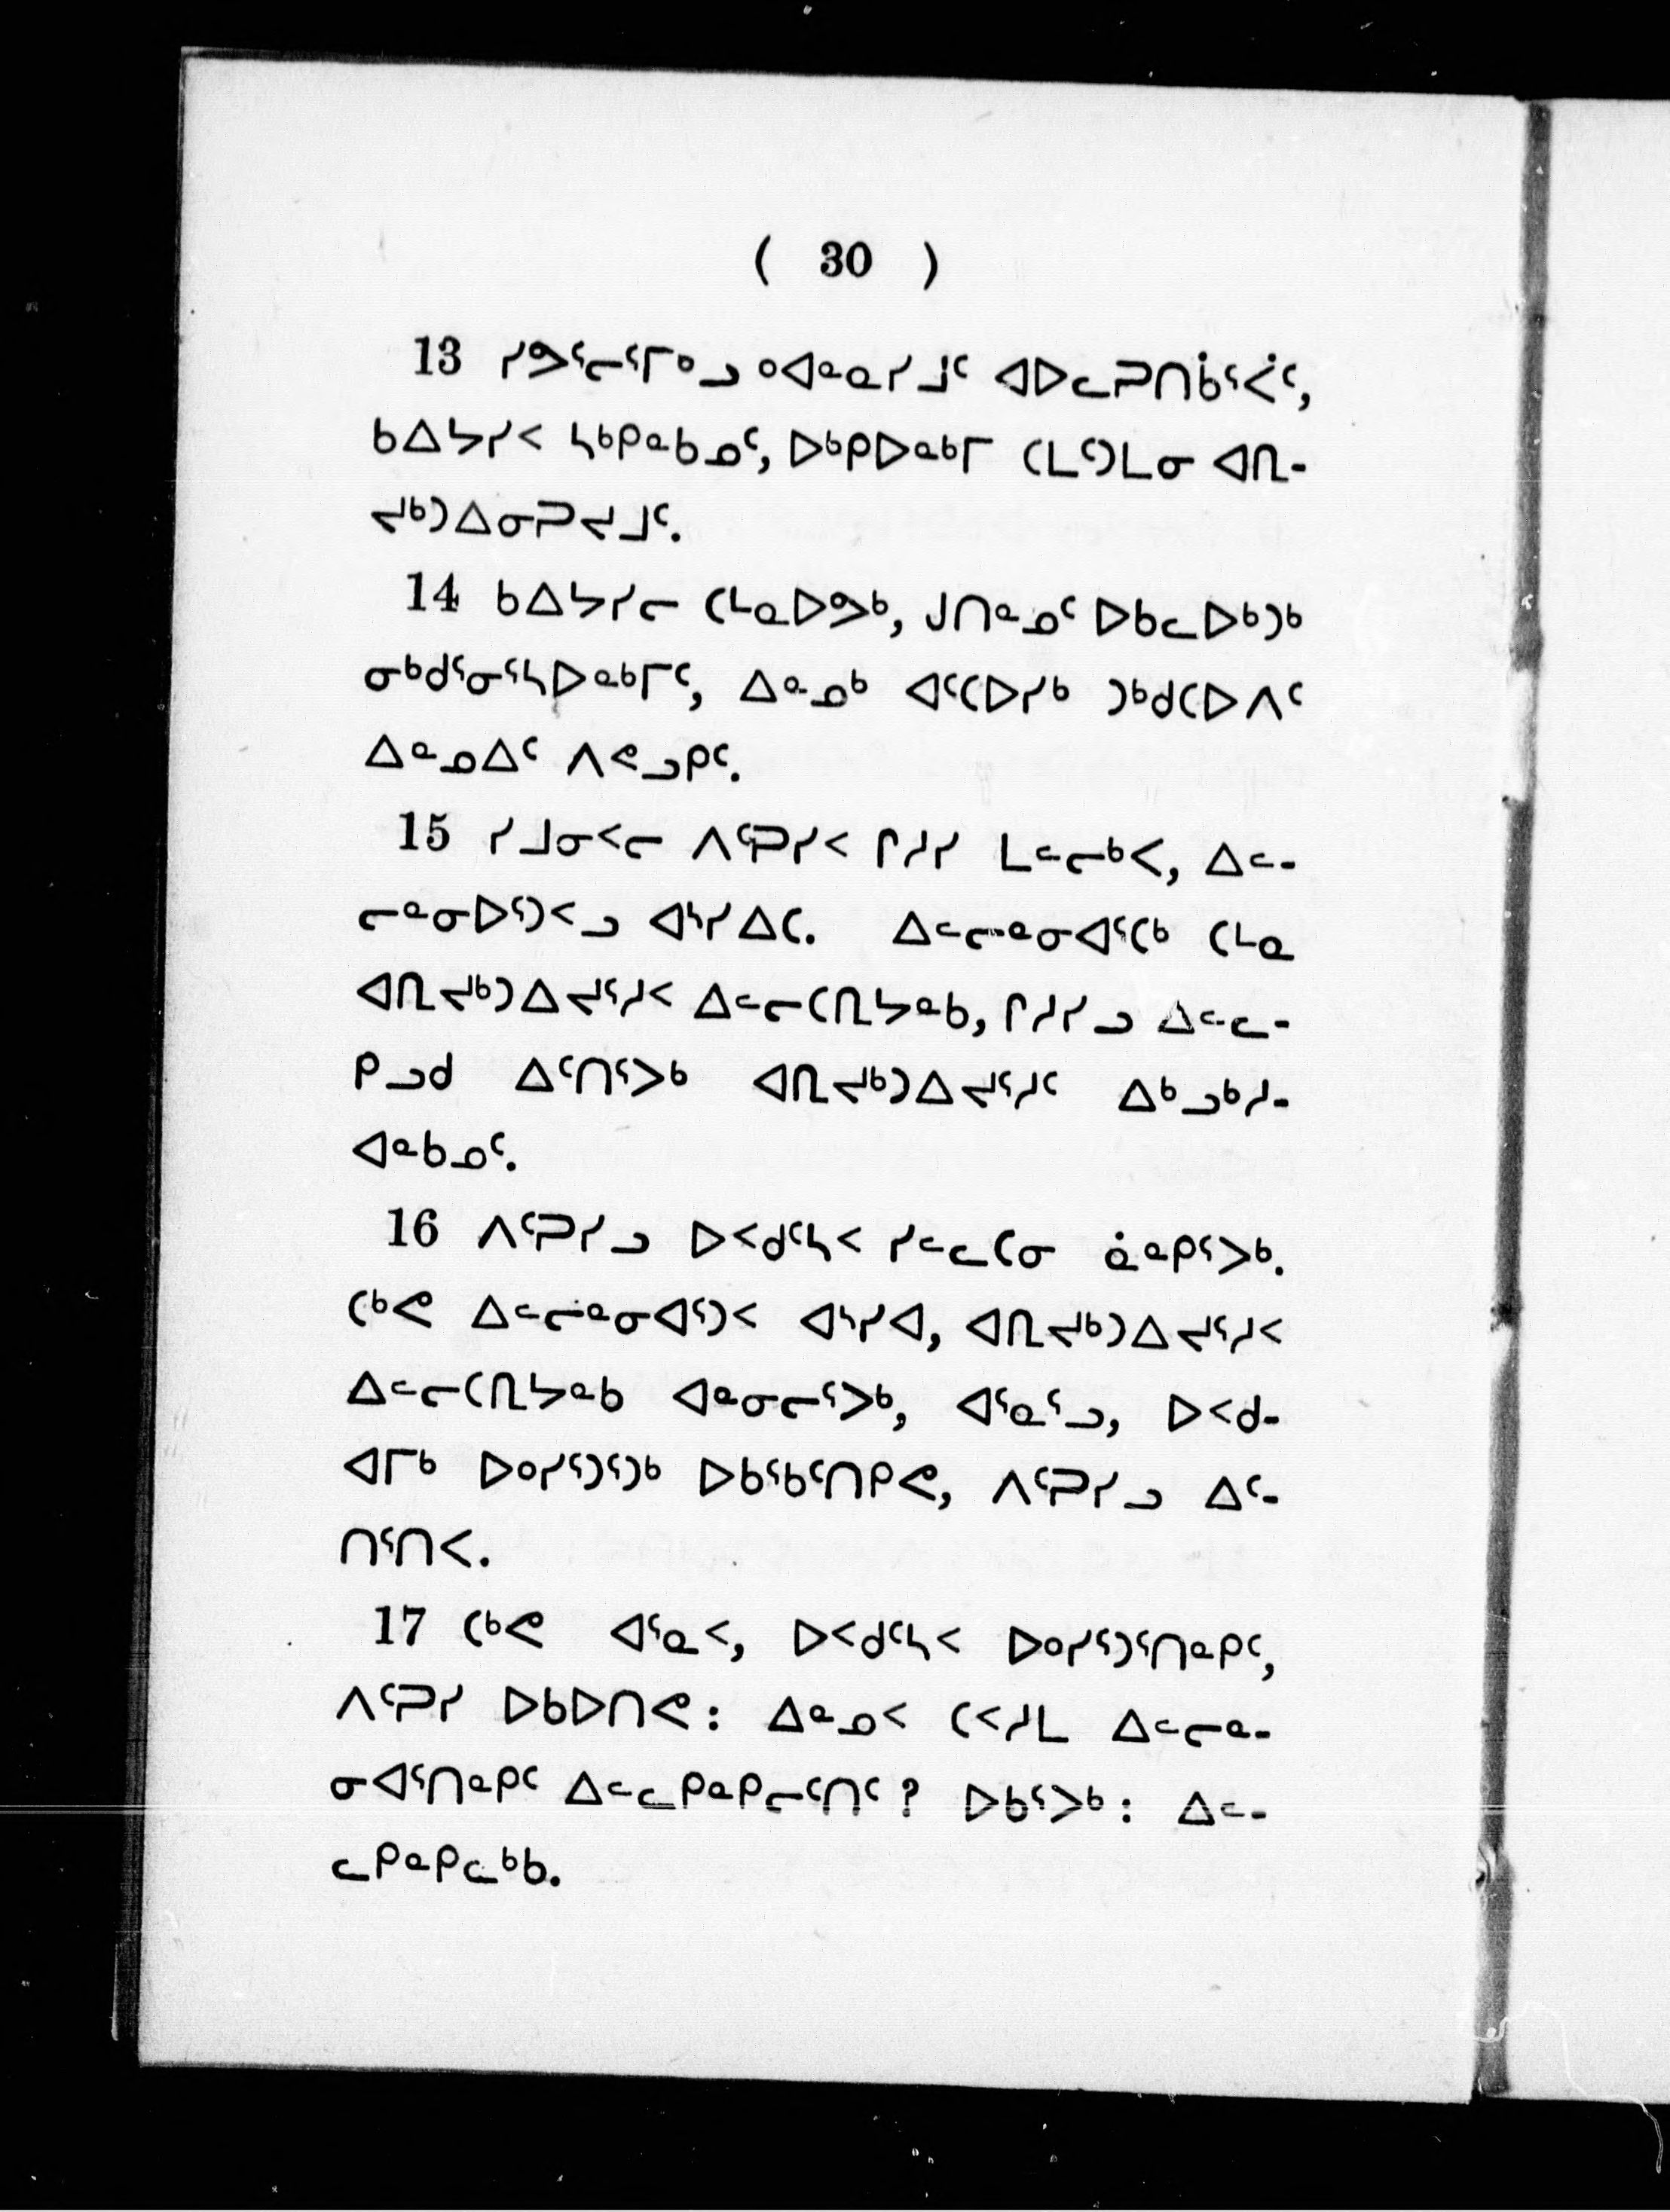 ( 30 )
13 ᓯᕗᕐᓕᕐᒥᐤᓗ ᐤᐊᓐᓇᓯᒧᑦ ᐊᐅᓚᑐᑎᑳᕐᐹᑦ,
ᑲᐃᔭᓯᑉ ᓴᒃᑭᓐᑲᓄᑦ, ᐅᒃᑭᐅᓐᒃᒥ ᑕᒪᕐᑐᒪᓂ ᐊᒋ-
ᔪᒃᑐᐃᓂᑐᔪᒧᑦ.
14 ᑲᐃᔭᓯᓕ ᑕᒻᓇᐅᕗᒃ, ᒍᑎᓐᓄᑦ ᐅᑲᓚᐅᒃᑐᒃ
ᓂᒃᑯᕐᓂᕐᓴᐅᓐᒃᒥᑦ, ᐃᓐᓄᒃ ᐊᑦᑕᐅᓯᒃ ᑐᒃᑯᑕᐅᐱᑦ
ᐃᓐᓄᐃᑦ ᐱᕙᓗᑭᑦ.
15 ᓯᒧᓂᑉᓕ ᐱᑦᑐᓯᑉ ᒋᓱᓯ ᒪᓪᓕᒃᐸ, ᐃᓪ-
ᓕᓐᓂᐅᕐᑐᑉᓗ ᐊᔅᓯᐃᑕ. ᐃᓪᓕᓐᓂᐊᕐᑕᒃ ᑕᒻᓇ
ᐊᒋᔪᒃᑐᐃᔪᕐᓱᑉ ᐃᓪᓕᑕᒋᔭᓐᑲ, ᒋᓱᓯᓗ ᐃᓪᓚ-
ᑭᓗᑯ ᐃᑦᑎᕐᐳᒃ ᐊᒋᔪᒃᑐᐃᔪᕐᓱᑦ ᐃᒃᓗᒃᓱ-
ᐊᓐᑲᓄᑦ.
16 ᐱᑦᑐᓯᓗ ᐅᑉᑯᑦᓴᑉ ᓯᓪᓚᑕᓂ ᓈᓐᑭᕐᐳᒃ.
ᑕᒃᕙ ᐃᓪᓕᓐᓂᐊᕐᑐᑉ ᐊᔅᓯᐊ, ᐊᒋᔪᒃᑐᐃᔪᕐᓱᑉ
ᐃᓪᓕᑕᒋᔭᓐᑲ ᐊᓐᓂᓕᕐᐳᒃ, ᐊᕐᓇᕐᓗ, ᐅᑉᑯ-
ᐊᒥᒃ ᐅᐤᓯᕐᑐᕐᑐᒃ ᐅᑲᕐᑲᑦᑎᑭᕙ, ᐱᑦᑐᓯᓗ ᐃᑦ-
ᑎᕐᑎᐸ.
17 ᑕᒃᕙ ᐊᕐᓇᑉ, ᐅᑉᑯᑦᓴᑉ ᐅᐤᓯᕐᑐᕐᑎᓐᑭᑦ,
ᐱᑦᑐᓯ ᐅᑲᐅᑎᕙ: ᐃᓐᓄᑉ ᑕᑉᓱᒪ ᐃᓪᓕᓐ-
ᓂᐊᕐᑎᓐᑭᑦ ᐃᓪᓚᑭᓐᑭᓕᑦᑎᑦ? ᐅᑲᕐᐳᒃ: ᐃᓪ-
ᓚᑭᓐᑭᓚᒃᑲ.